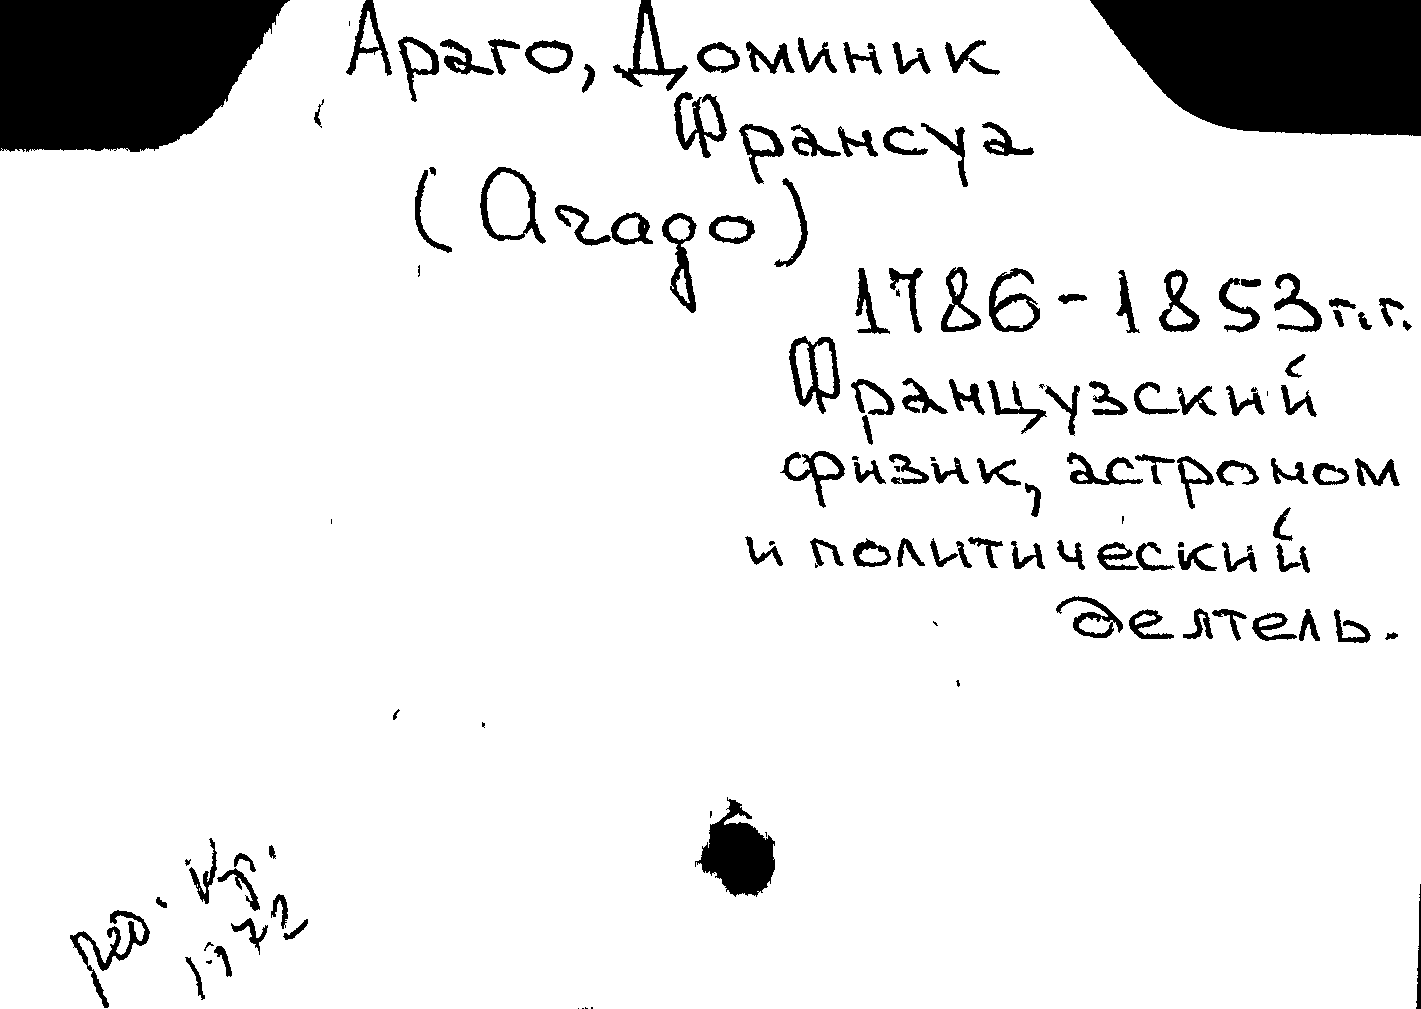 Араго, Доминик
Франсуа
(Агадо)
1786-1853 г.г.
Французский
физик, астроном
и политический
деятель.
1972